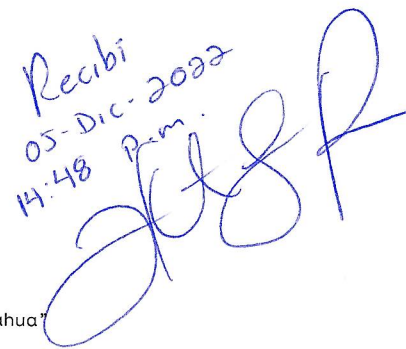 Recibi
05-Dic-2022
14:48 p.m.
ahua"